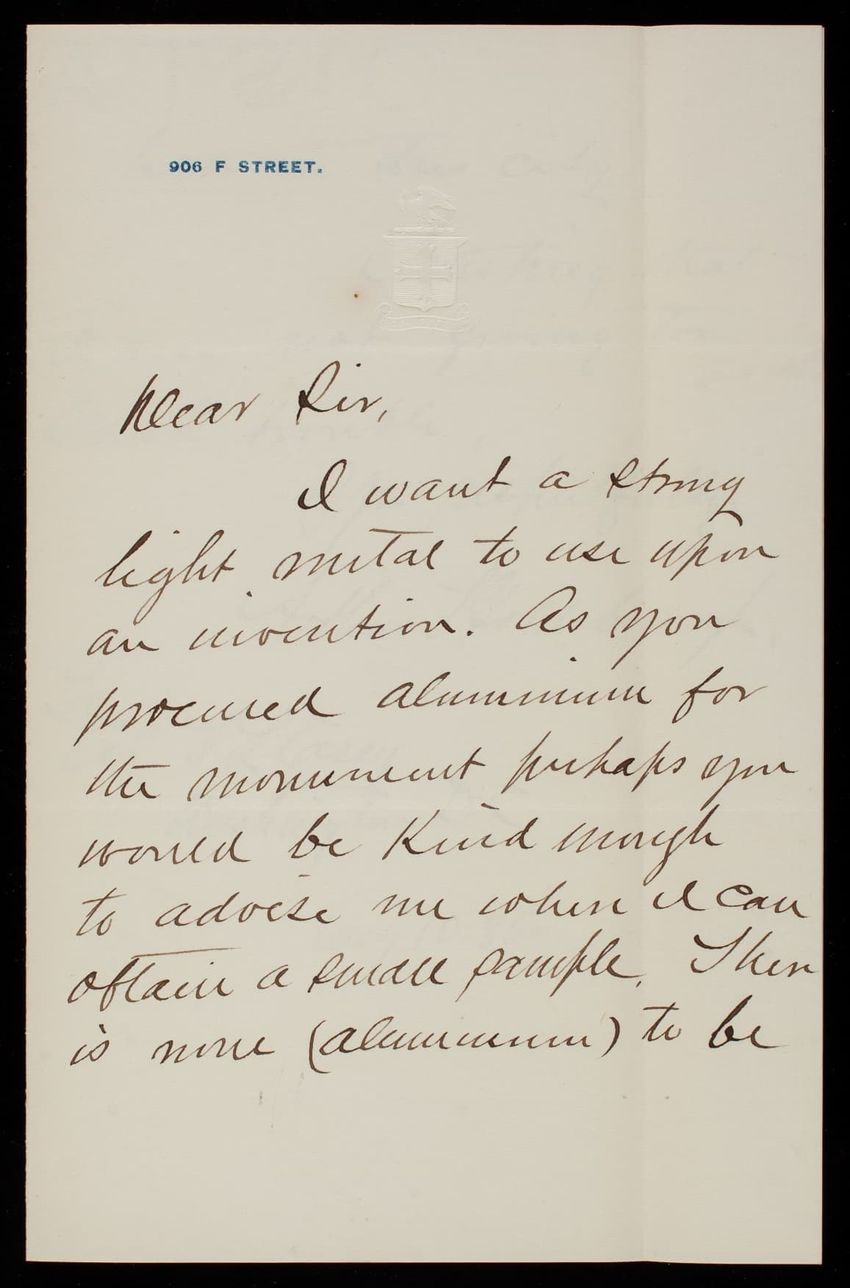 906 F STREET.
Dear Sir,
I want a strong
light metal to use upon
an invention. As you
procured aluminium for
the monument perhaps you
would be kind enough
to advise me where I can
obtain a small sample. There
is none (aluminium) to be